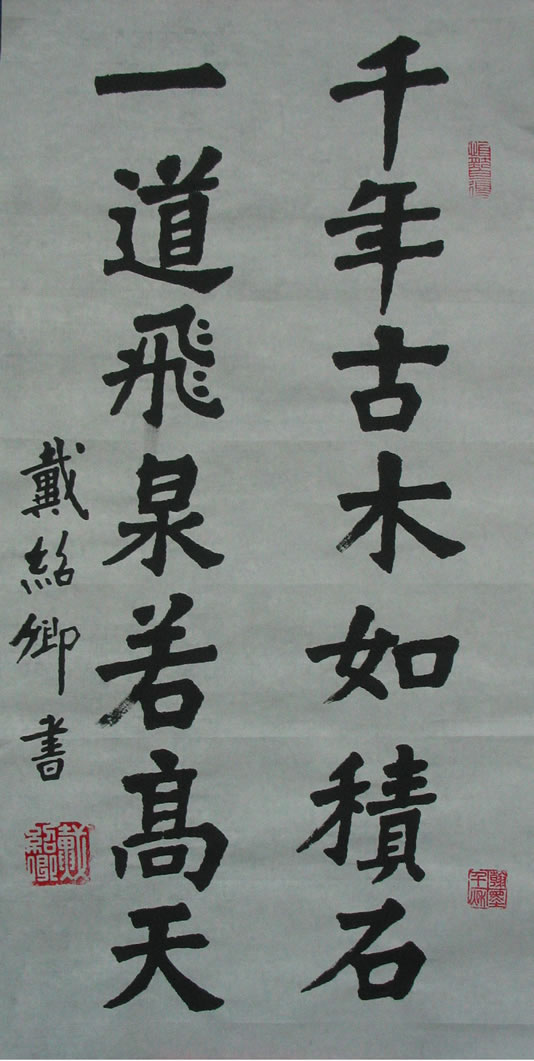 千年古木如積石
一道飛泉若髙天
戴紹卿書
戴紹卿